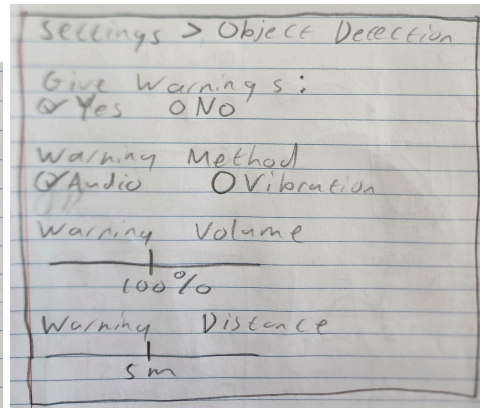 Settings > Object Detection
Give Warnings:
Yes No
Warning Method
Audio Vibration
Warning Volume
100%
Warning Distance
5m